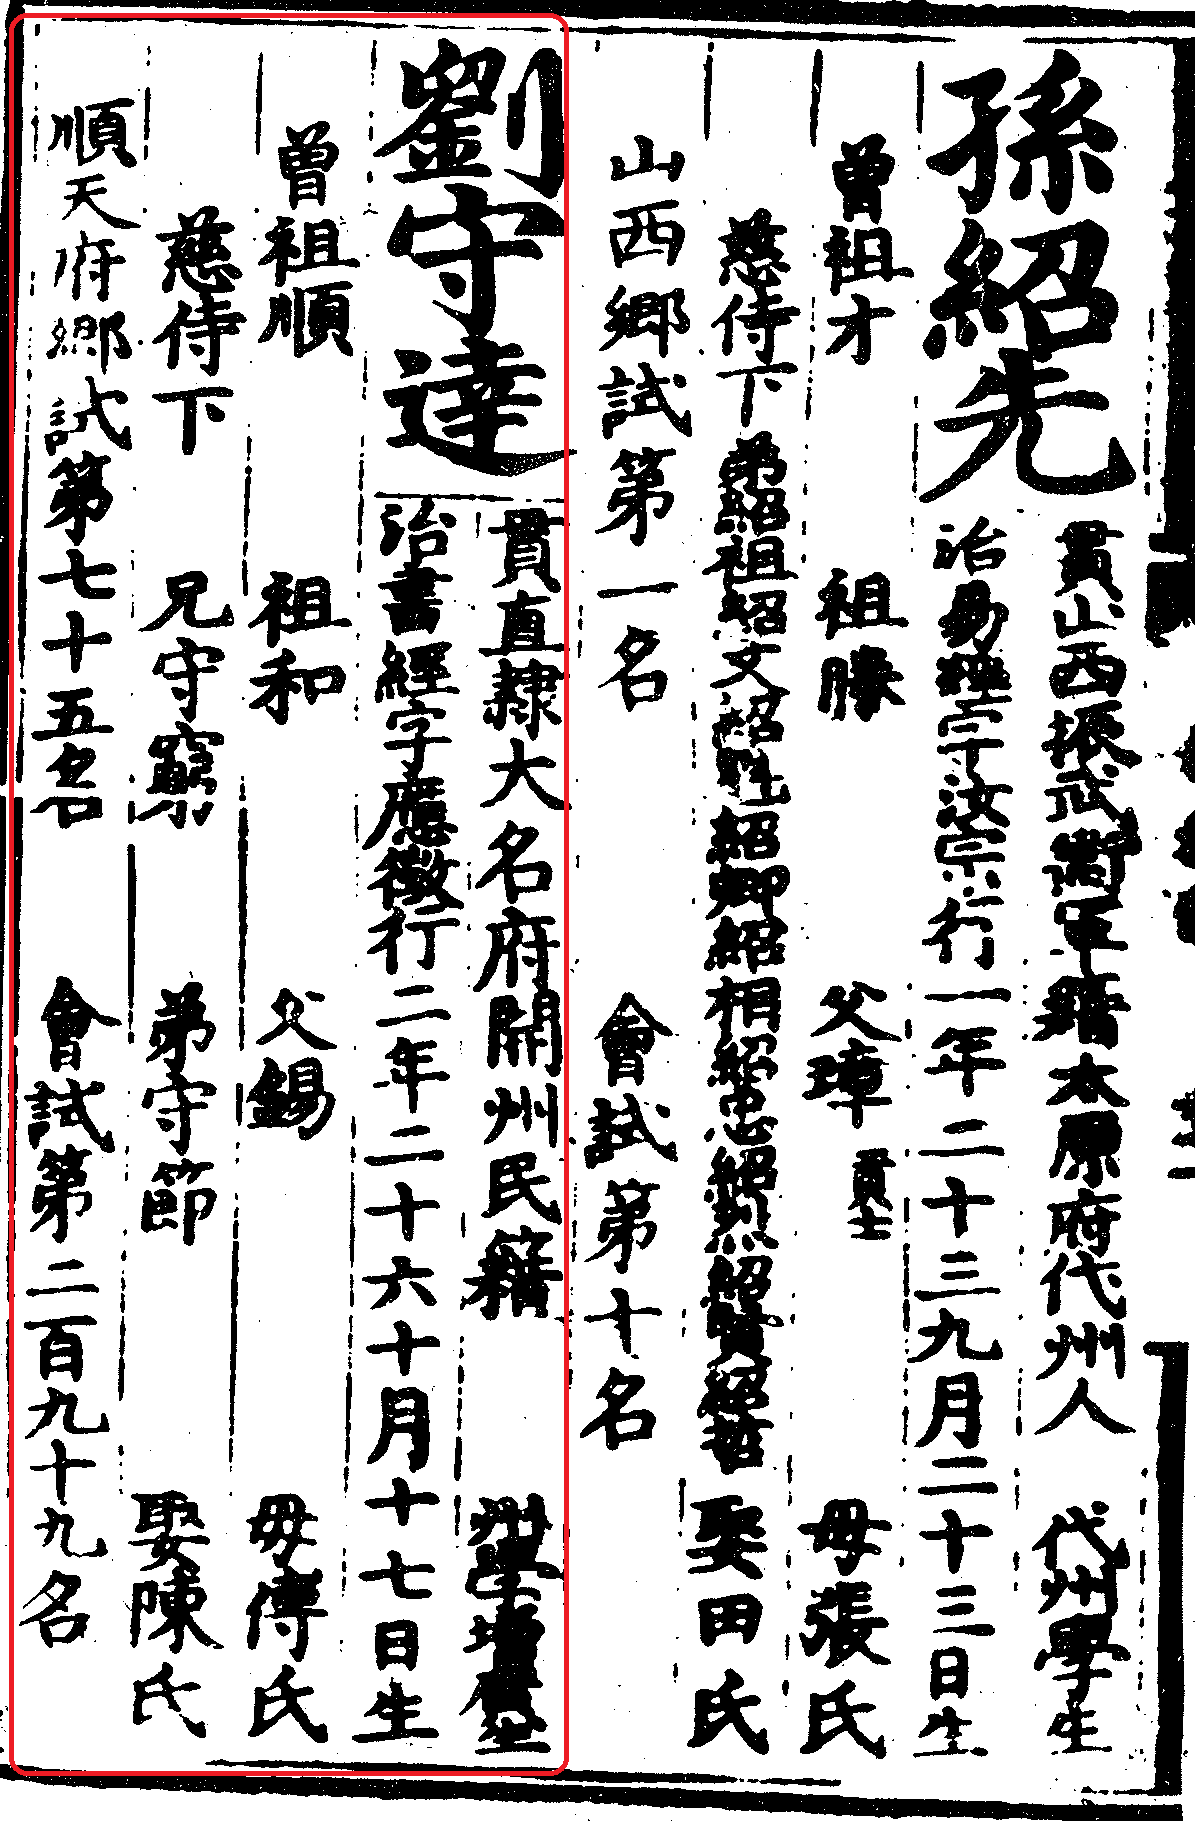 孫紹先
貫山西振武衛軍籍太原府代州人 代州學生
治易經字汝宗行一年二十三九月二十三日生
曾祖才 祖勝 父璋 貢士 母張氏
慈侍下 弟紹祖紹文紹紹卿紹相紹忠紹烈紹賢紹哲 娶田氏
山西鄉試第一名 會試第十名
劉守達
貫直隸大名府開州民籍 州學增廣生
治書經字應徵行二年二十六十月十七日生
曾祖順 祖和 父錫 母傅氏
慈侍下 兄守窮 弟守節 娶陳氏
順天府鄉試第七十五名 會試第二百九十九名